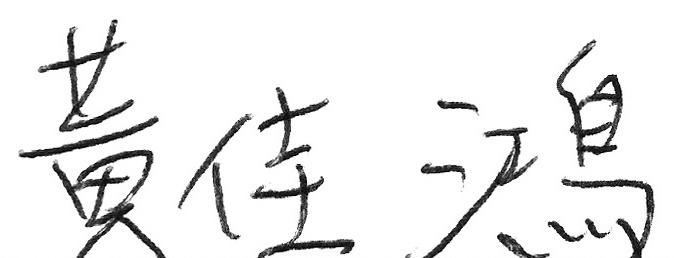 黃佳鴻